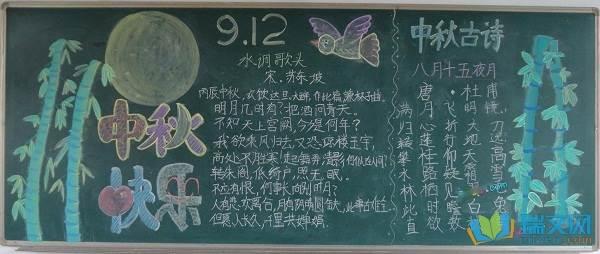 中秋
快乐
9.12
水调歌头
宋.苏东坡
丙辰中秋，欢饮达旦，大醉，作此篇，兼怀子由。
明月几时有？把酒问青天。
不知天上宫阙，今是何年？
我欲乘风归去，又恐琼楼玉宇，
高处不胜寒，起舞弄清影，何似在人间
转朱阁，低绮户，照无眠。
不应有恨，何事长向别时圆？
人有悲欢离合，月有阴晴圆缺，此事古难全
但愿人长久，千里共婵娟。
中秋古诗
八月十五夜月
唐·杜甫
满月飞明镜，
归心折大刀
转蓬行地远
攀桂仰天高
水路疑霜雪
林栖见羽毛
此时瞻白兔
直欲数
瑞文网